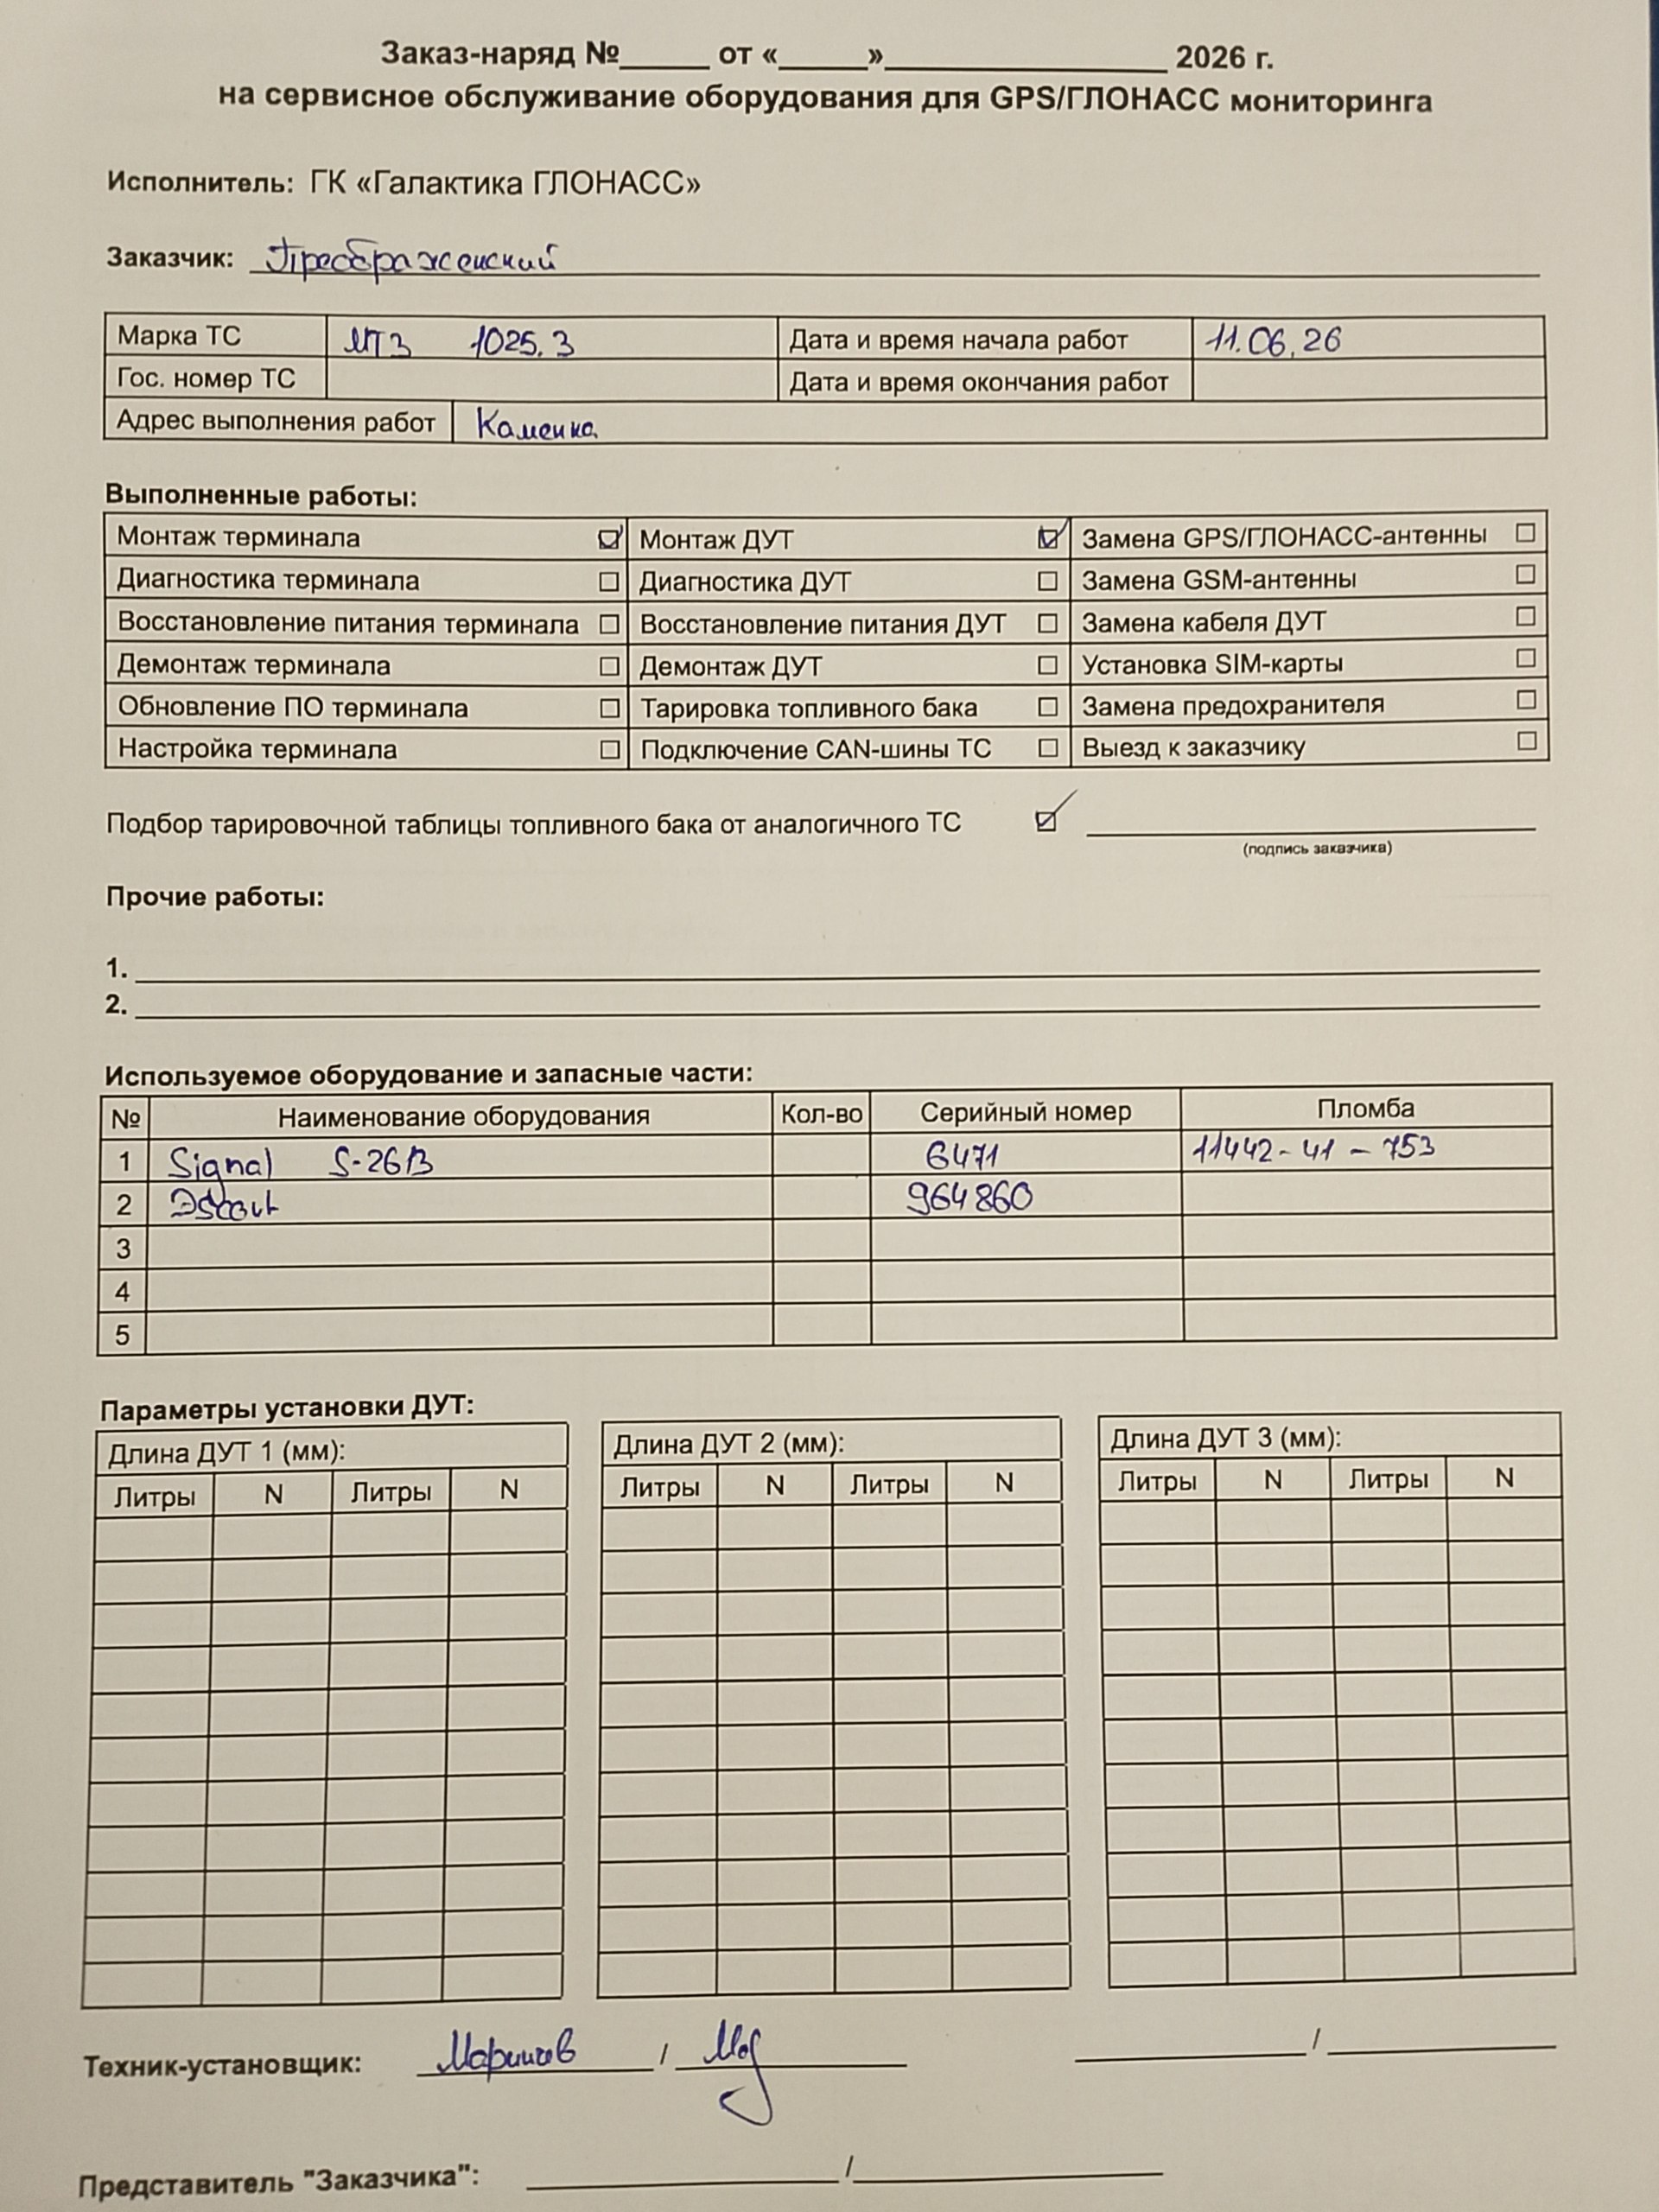 Заказ-наряд №_____ от «_____»________________ 2026 г.
на сервисное обслуживание оборудования для GPS/ГЛОНАСС мониторинга
Исполнитель: ГК «Галактика ГЛОНАСС»
Заказчик: Преображенский
Марка ТС МТЗ 1025.3 Дата и время начала работ 11.06.26
Гос. номер ТС Дата и время окончания работ
Адрес выполнения работ Каменка
Выполненные работы:
Монтаж терминала ☑ Монтаж ДУТ ☑ Замена GPS/ГЛОНАСС-антенны ☐
Диагностика терминала ☐ Диагностика ДУТ ☐ Замена GSM-антенны ☐
Восстановление питания терминала ☐ Восстановление питания ДУТ ☐ Замена кабеля ДУТ ☐
Демонтаж терминала ☐ Демонтаж ДУТ ☐ Установка SIM-карты ☐
Обновление ПО терминала ☐ Тарировка топливного бака ☐ Замена предохранителя ☐
Настройка терминала ☐ Подключение CAN-шины ТС ☐ Выезд к заказчику ☐
Подбор тарировочной таблицы топливного бака от аналогичного ТС ☑
(подпись заказчика)
Прочие работы:
1.
2.
Используемое оборудование и запасные части:
№ Наименование оборудования Кол-во Серийный номер Пломба
1 Signal S-26B 6471 11442-41-753
2 964860
3
4
5
Параметры установки ДУТ:
Длина ДУТ 1 (мм): Длина ДУТ 2 (мм): Длина ДУТ 3 (мм):
Литры N Литры N Литры N Литры N Литры N Литры N
Техник-установщик: / /
Представитель "Заказчика": /